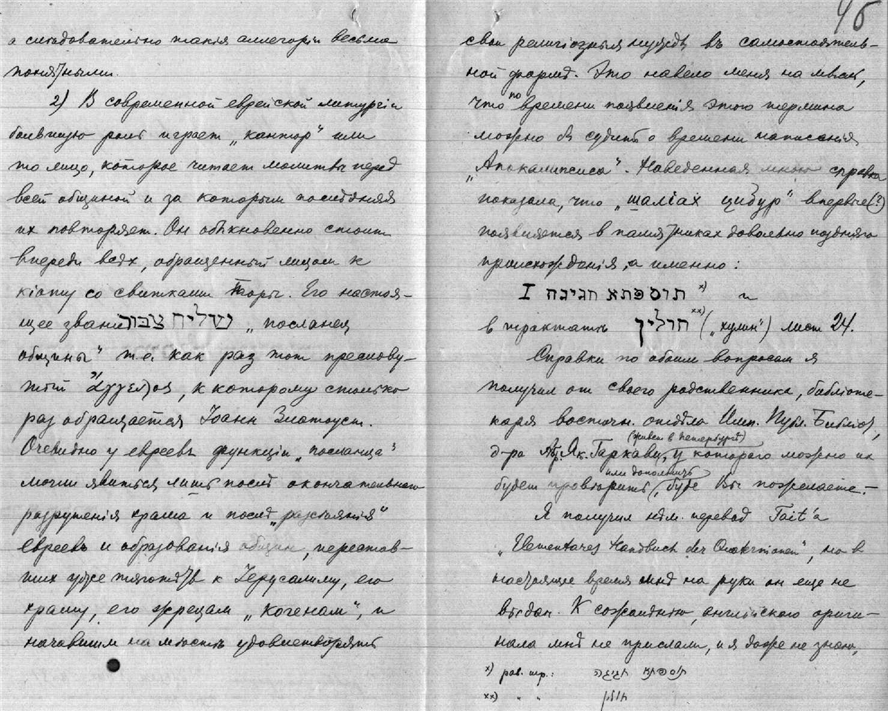 а слѣдовательно такія аллегоріи весьма
понятными.
2) В современной еврейской литургіи
большую роль играет „кантор" или
то лицо, которое читает молитвы перед
всей общиной и за которым послѣдняя
их повторяет. Он обыкновенно стоит
впереди всѣх, обращенный лицом к
кіоту со свитками Торы. Его настоя-
щее званіе שליח צבור „посланец
общины" т. е. как раз тот преслову-
тый Ἄγγελος, к которому столько
раз обращается Іоанн Златоуст.
Очевидно у евреев функціи „посланца"
могли явиться лишь послѣ окончательнаго
разрушенія храма и послѣ „разсѣянія"
евреев и образованія общин, перестав-
ших уже тяготѣть к Іерусалиму, его
храму, его жрецам „когенам", и
начавшим на мѣстѣ удовлетворять
46
свои религіозныя нужды в самостоятель-
ной формѣ. Это навело меня на мысль,
что по времени появленія этого термина
можно б судить о времени написанія
„Апокалипсиса". Наведенная мною справка
показала, что „шаліах цибур" впервые (?)
появляется в памятниках довольно поздняго
происхожденія, а именно:
תוספתא חגיגה I x) и
в трактатѣ חולין xx) („хулин") лист 24.
Справки по обоим вопросам я
получил от своего родственника, библіоте-
каря восточн. отдѣла Имп. Публ. Библіот.,
(живет в Петербургѣ)
д-ра Ав. Як. Гаркави, у которого можно их
или дополнить
будет провѣрить, буде Вы пожелаете.—
Я получил нѣм. перевод Tait'а
„Elementares Handbuch der Quaternionen", но в
настоящее время мнѣ на руки он еще не
выдан. К сожалѣнію, англійского ориги-
нала мнѣ не прислали, и я даже не знаю,
x) рав. шр.: תוספתא חגיגה
xx) „ „ חולין